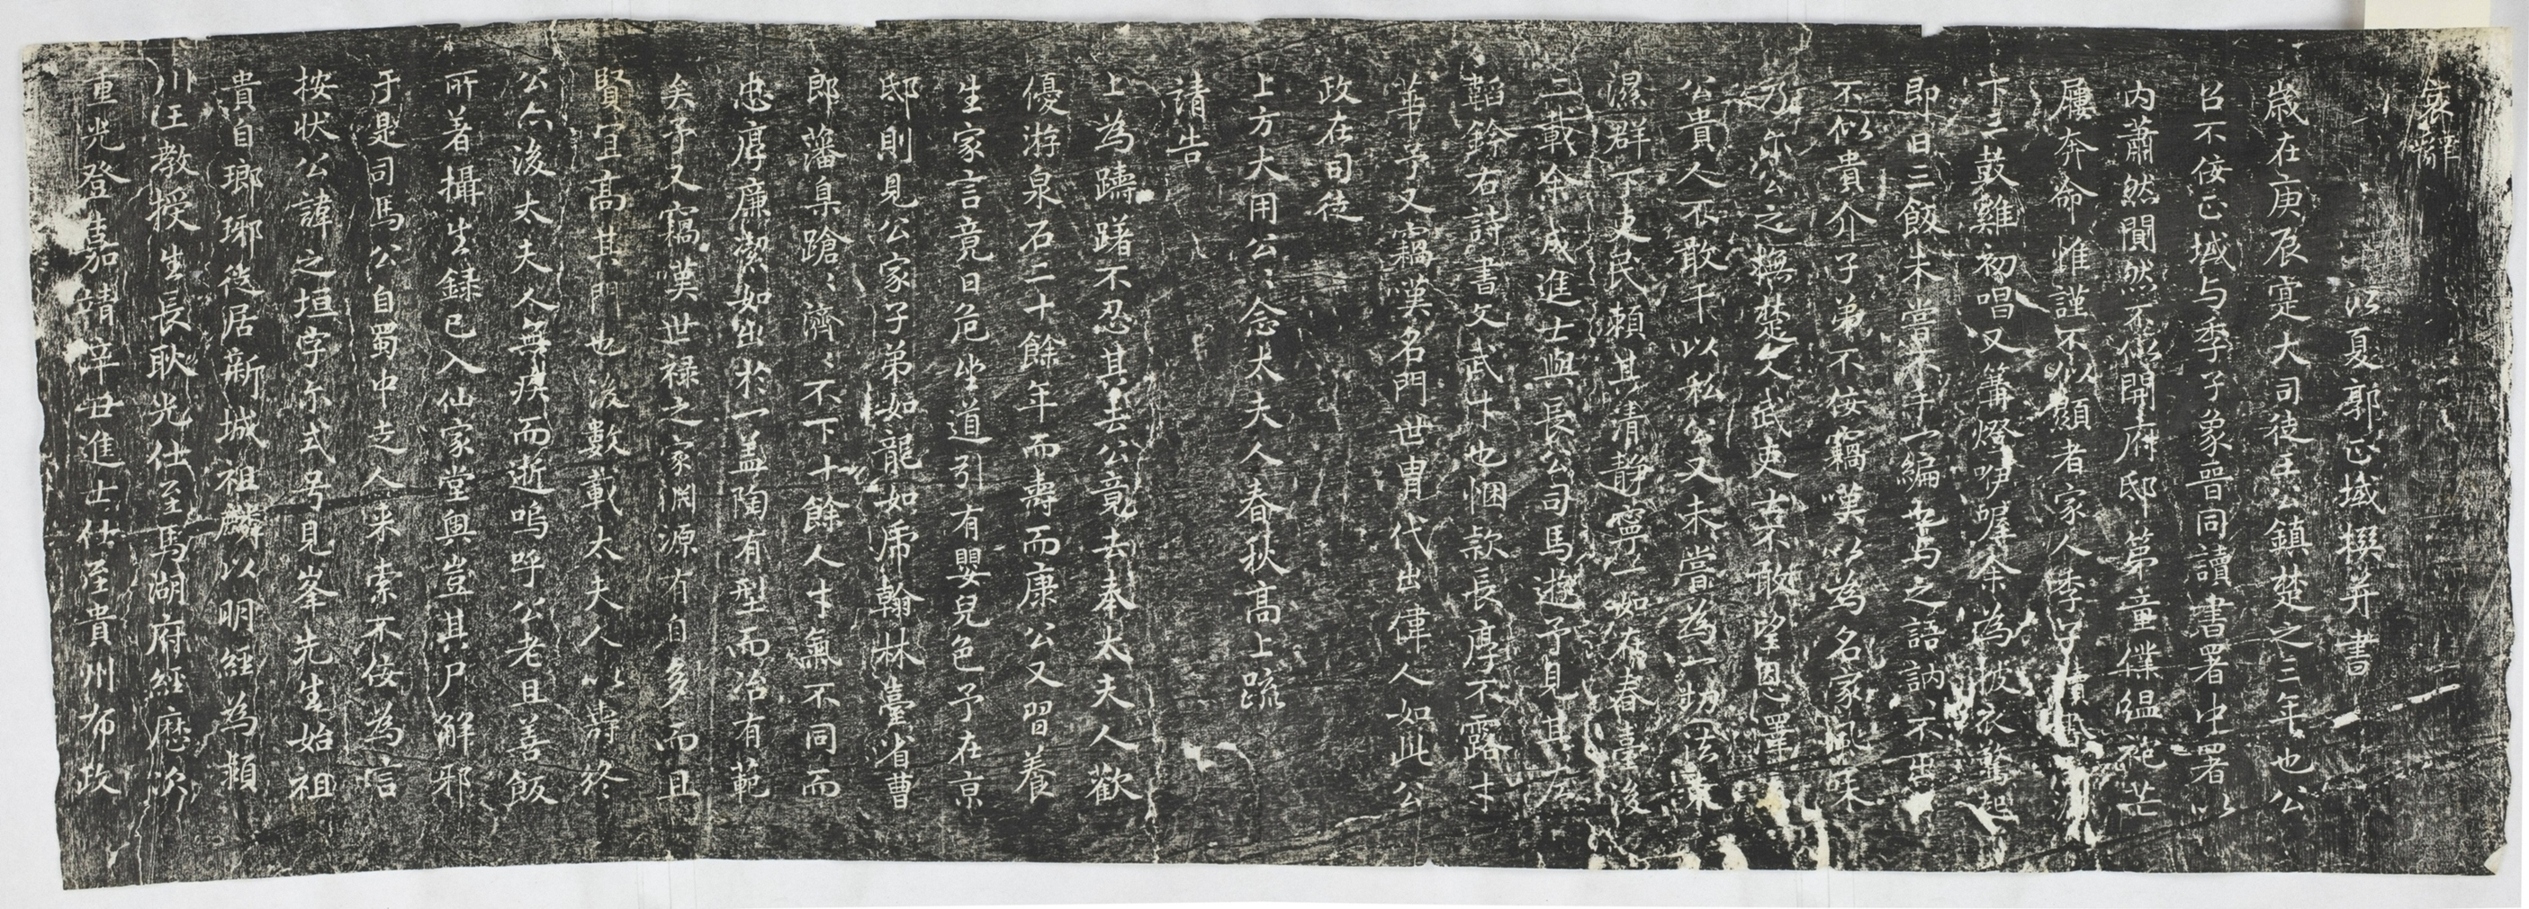 哀辭
江夏郭正域撰并書
歲在庚辰寔大司徒王公鎮楚之三年也公
召不佞正域与季子象晋同讀書署中署者以
内蕭然闃然不似開府邸第童僕縕袍芒
屨奔命惟謹不以顏者家人季子讀
下二鼓雞初唱又篝燈咿喔余為披衣驚起
即日三飯未嘗不手一編也与之語訥訥不出
不似貴介子弟不佞竊嘆以為名家風味
乃尔公之撫楚文武吏士不敢望恩澤
公貴人不敢干以私公又未嘗為一切法束
濕群下吏民賴其清静寧一如在春臺後
三載余成進士與長公司馬遊予見其左
韜鈐右詩書文武才也悃款長厚不露才
華予又竊嘆名門世胄代出偉人如此公
政在司徒
上方大用公公念太夫人春秋高上疏
請告
上為躊躇不忍其去公竟去奉太夫人歡
優游泉石二十餘年而壽而康公又習養
生家言竟日危坐道引有嬰兒色予在京
邸則見公家子弟如龍如虎翰林臺省曹
郎藩臬蹌蹌濟濟不下十餘人才氣不同而
忠厚廉潔如出於一盖陶有型而冶有範
矣予又竊嘆世禄之家淵源有自多而且
賢宜高其門也後數載太夫人以壽終
公亦後太夫人無疾而逝嗚呼公老且善飯
所著攝生録已入仙家堂奥豈其尸解邪
于是司馬公自蜀中走人来索不佞為信
按状公諱之垣字尔式号見峯先生始祖
貴自瑯琊徙居新城祖麟以明經為潁
川王教授生長耿光仕至馬湖府經歷次
重光登嘉靖辛丑進士仕至貴州布政